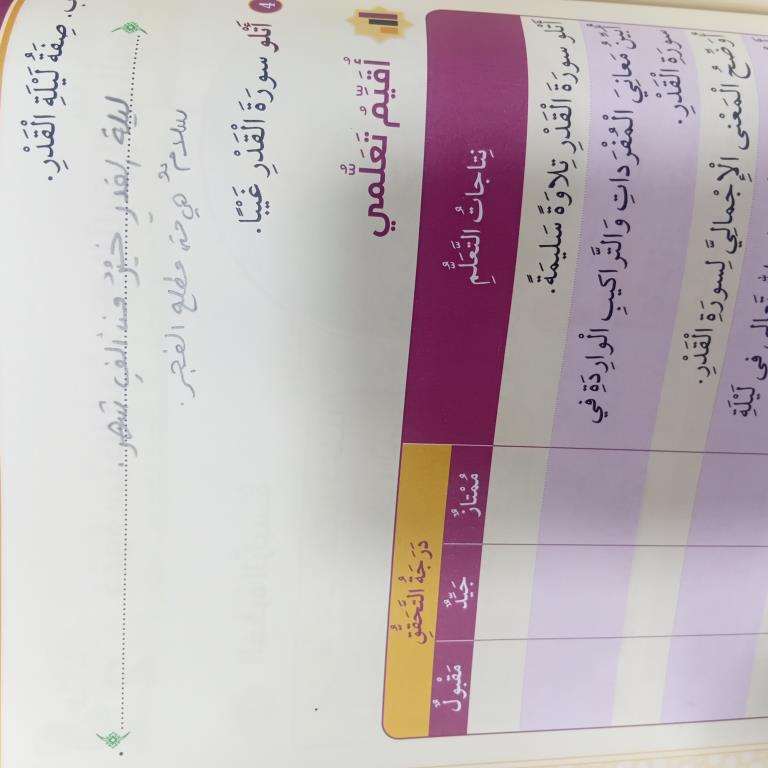 ب. صِفَةُ لَيْلَةِ الْقَدْرِ.
ليلة لقدر خيرٌ من ألفِ شهر.
سلامٌ هي حتى مطلع الفجر.
4 أَتْلو سورَةَ الْقَدْرِ غَيْبًا.
أُقَيِّمُ تَعَلُّمي
نِتاجاتُ التَّعَلُّمِ
دَرَجَةُ التَّحَقُّقِ
مُمْتازٌ جَيِّدٌ مَقْبولٌ
أَتْلو سورَةَ الْقَدْرِ تِلاوَةً سَليمَةً.
أُبَيِّنُ مَعانِيَ الْمُفْرَداتِ وَالتَّراكيبِ الْوارِدَةِ في
سورَةِ الْقَدْرِ.
أُوَضِّحُ الْمَعْنى الْإِجْمالِيَّ لِسورَةِ الْقَدْرِ.
تَعالى في لَيْلَةِ